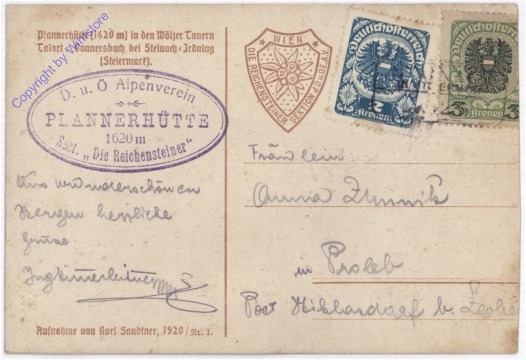 Plannerhütte (1620 m) in den Wölzer Tauern
Talort Donnersbach bei Steinach-Irdning
(Steiermark).
Copyright by Winstore
D. u. Ö Alpenverein
PLANNERHÜTTE
1620 m
Sect. „Die Reichensteiner"
WIEN
DIE REICHENSTEINER SEKTION d. D. u. Ö. A. V.
Deutschösterreich
2
Kronen
Deutschösterreich
3 3
Kronen
Aus wunderschönen
Bergen herzliche
Grüsse
Fräulein
Anna
in Proleb
Post Niklasdorf b. Leoben
Aufnahme von Karl Sandtner, 1920 / Nr. 1.